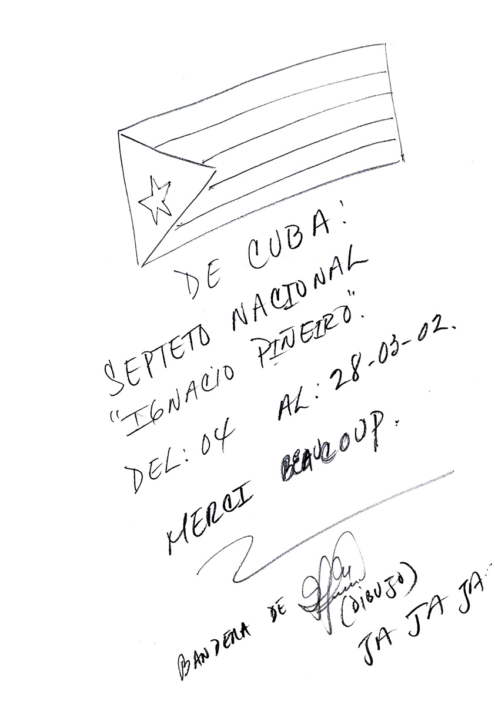 DE CUBA:
SEPTETO NACIONAL
"IGNACIO PIÑEIRO".
DEL: 04 AL: 28-03-02.
MERCI BEAUCOUP.
BANDERA DE (DIBUJO)
JA JA JA